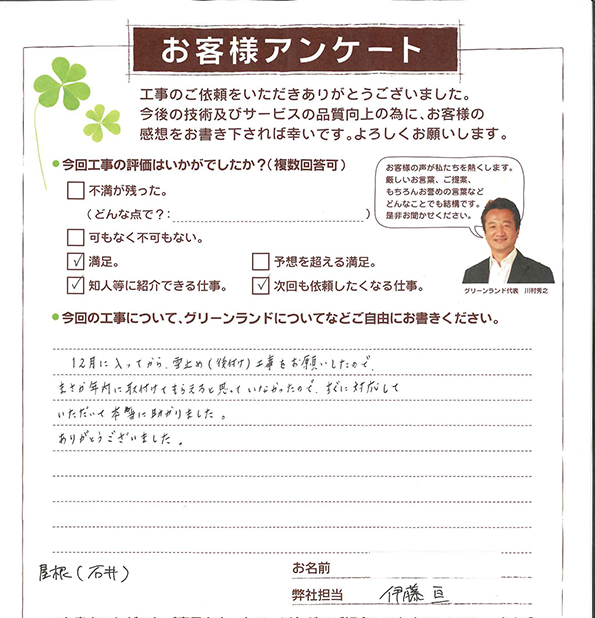 お客様アンケート
工事のご依頼をいただきありがとうございました。
今後の技術及びサービスの品質向上の為に、お客様の
感想をお書き下されば幸いです。よろしくお願いします。
●今回工事の評価はいかがでしたか?(複数回答可)
お客様の声が私たちを熱くします。
厳しいお言葉、ご提案、
もちろんお誉めの言葉など
どんなことでも結構です。
是非お聞かせください。
□不満が残った。
(どんな点で?: )
□可もなく不可もない。
☑満足。 □予想を超える満足。
☑知人等に紹介できる仕事。 ☑次回も依頼したくなる仕事。
グリーンランド代表 川村秀之
●今回の工事について、グリーンランドについてなどご自由にお書きください。
12月に入ってから、雪止め(後付け)工事をお願いしたので、
まさか年内に取付けてもらえると思っていなかったので、すぐに対応して
いただいて本当に助かりました。
ありがとうございました。
屋根(石井)
お名前
弊社担当 伊藤 亘